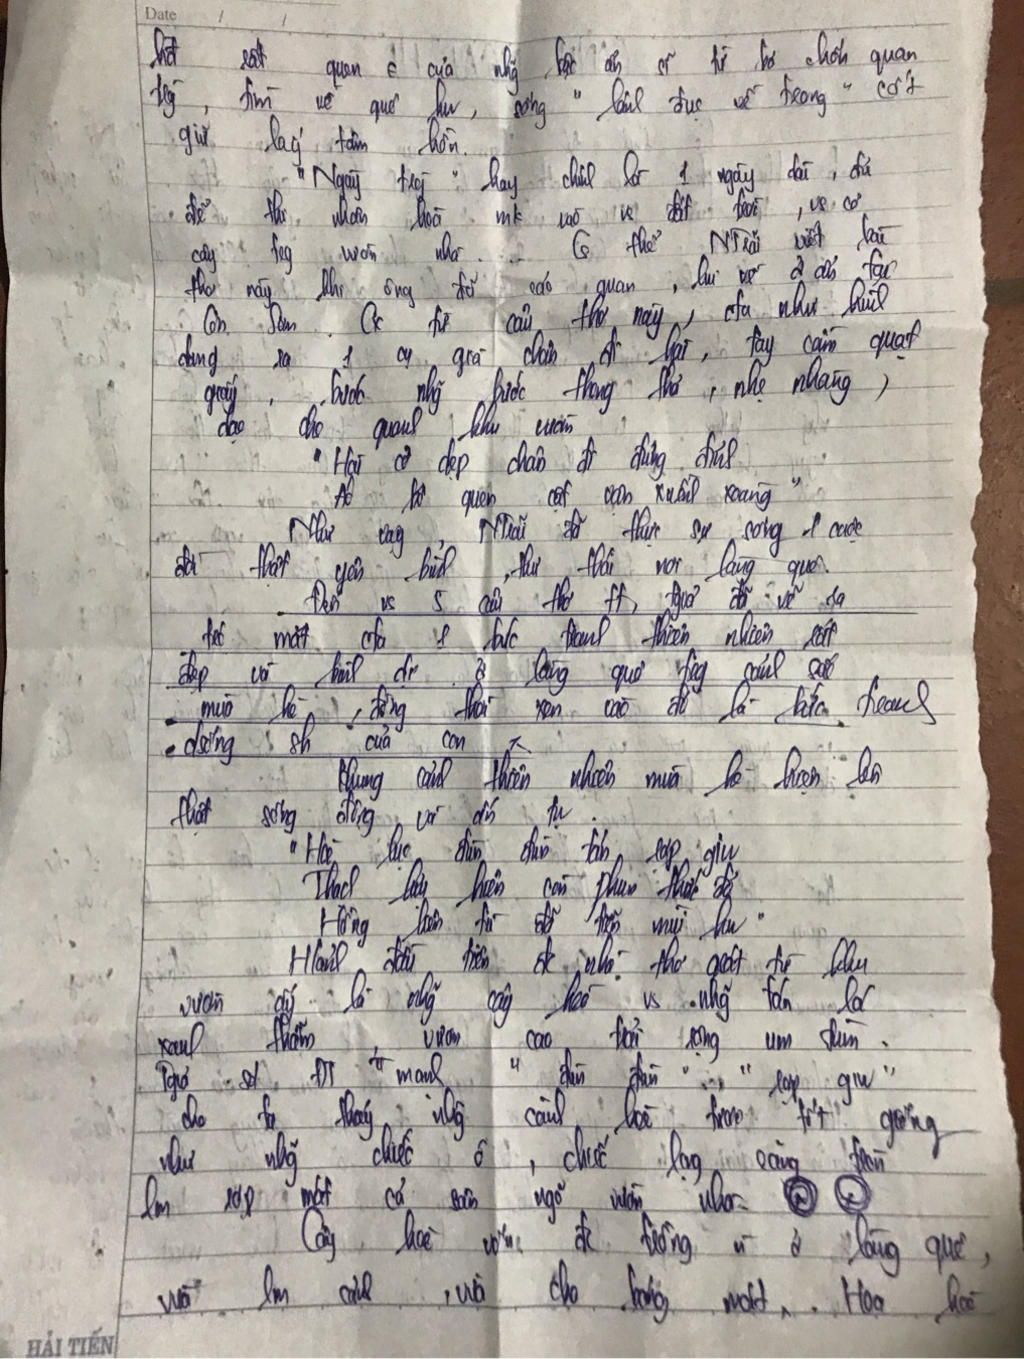 Date / /
quan of của nhg bậc ẩn sĩ từ bỏ chốn quan
tìm về quê hư, sống " lánh đục về trong " cốt
giữ lấy tâm hồn.
"Ngày trg " hay chính là 1 ngày dài, đủ
để thi nhân hoà mk vào vs đất trời, vs cỏ
cây trg vườn nhà... Có thể NTrãi viết bài
thơ này khi ông đã cáo quan, lui về ở ẩn tại
Côn Sơn. Đọc câu thơ này, cta như hình
dung ra 1 cụ già chân đi hài, tay cầm quạt
giấy, bước nhg bước thong thả, nhẹ nhàng,
dạo chơi quanh khu vườn
"Hài cỏ đẹp chân đi đủng đỉnh
Áo bô quen cật vận xuềnh xoàng"
Như vậy, NTrãi đã thực sự sống 1 cuộc
đời thật yên bình, thư thái nơi làng quê.
Đến vs 5 câu thơ tt, tgiả đã vẽ ra
trc mắt cta 1 bức tranh thiên nhiên rất
đẹp và bình dị ở làng quê trg cảnh sắc
mùa hè, đồng thời xen vào đó là bức tranh
cuộc sống sh của con ng
Khung cảnh thiên nhiên mùa hè hiện lên
thật sống động và
"Hoè lục đùn đùn tán rợp giư
Thạch lựu hiên còn phun thức đỏ
Hồng liên trì đã tiễn mùi hư"
Hình đầu tiên đc nhà thơ qsát từ khu
vườn ấy là nhg cây hoè vs nhg tán lá
xanh thẫm, vươn cao, trải rộng um tùm.
Tgiả sd ĐT mạnh "đùn đùn"..., "rợp giư"
cho ta thấy nhg cành hoè giống
như nhg chiếc ô, chiếc lọng căng tròn
lm rợp mát cả sân ngõ vườn nhà.
Cây hoè đc trồng ở làng quê,
vừa lm cảnh, vừa cho bóng mát. Hoa hoè
HẢI TIẾN